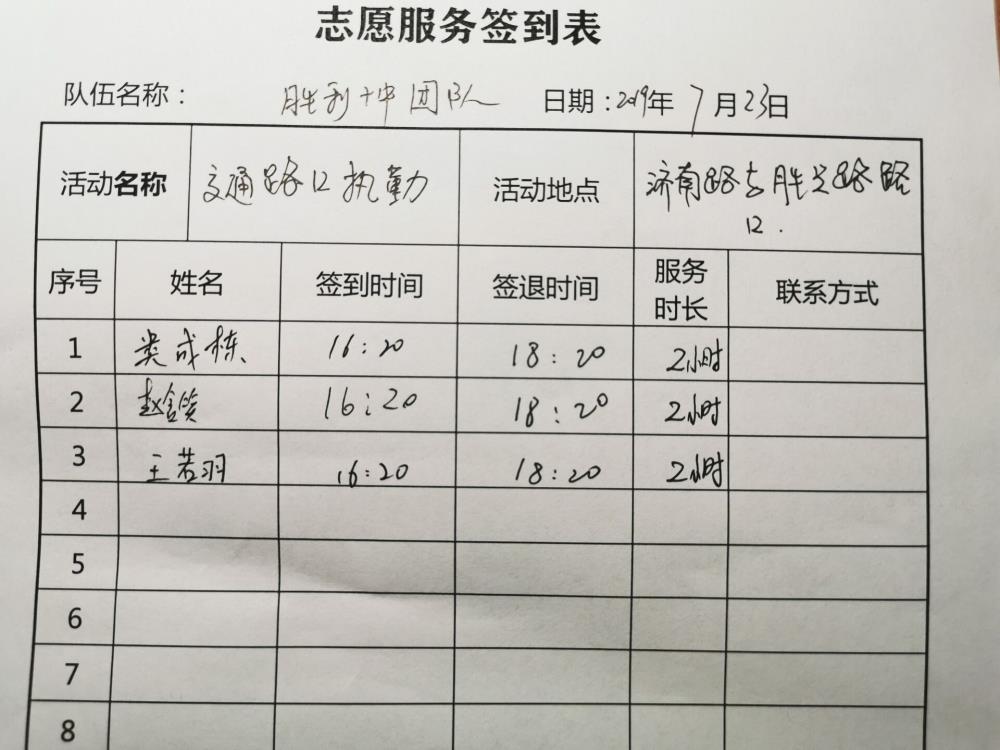 志愿服务签到表
队伍名称： 胜利十中团队 日期：2019年 7月23日
活动名称 交通路口执勤 活动地点 济南路与胜兴路路口.
序号 姓名 签到时间 签退时间 服务时长 联系方式
1 娄成栋 16:20 18:20 2小时
2 赵含笑 16:20 18:20 2小时
3 王若羽 16:20 18:20 2小时
4
5
6
7
8